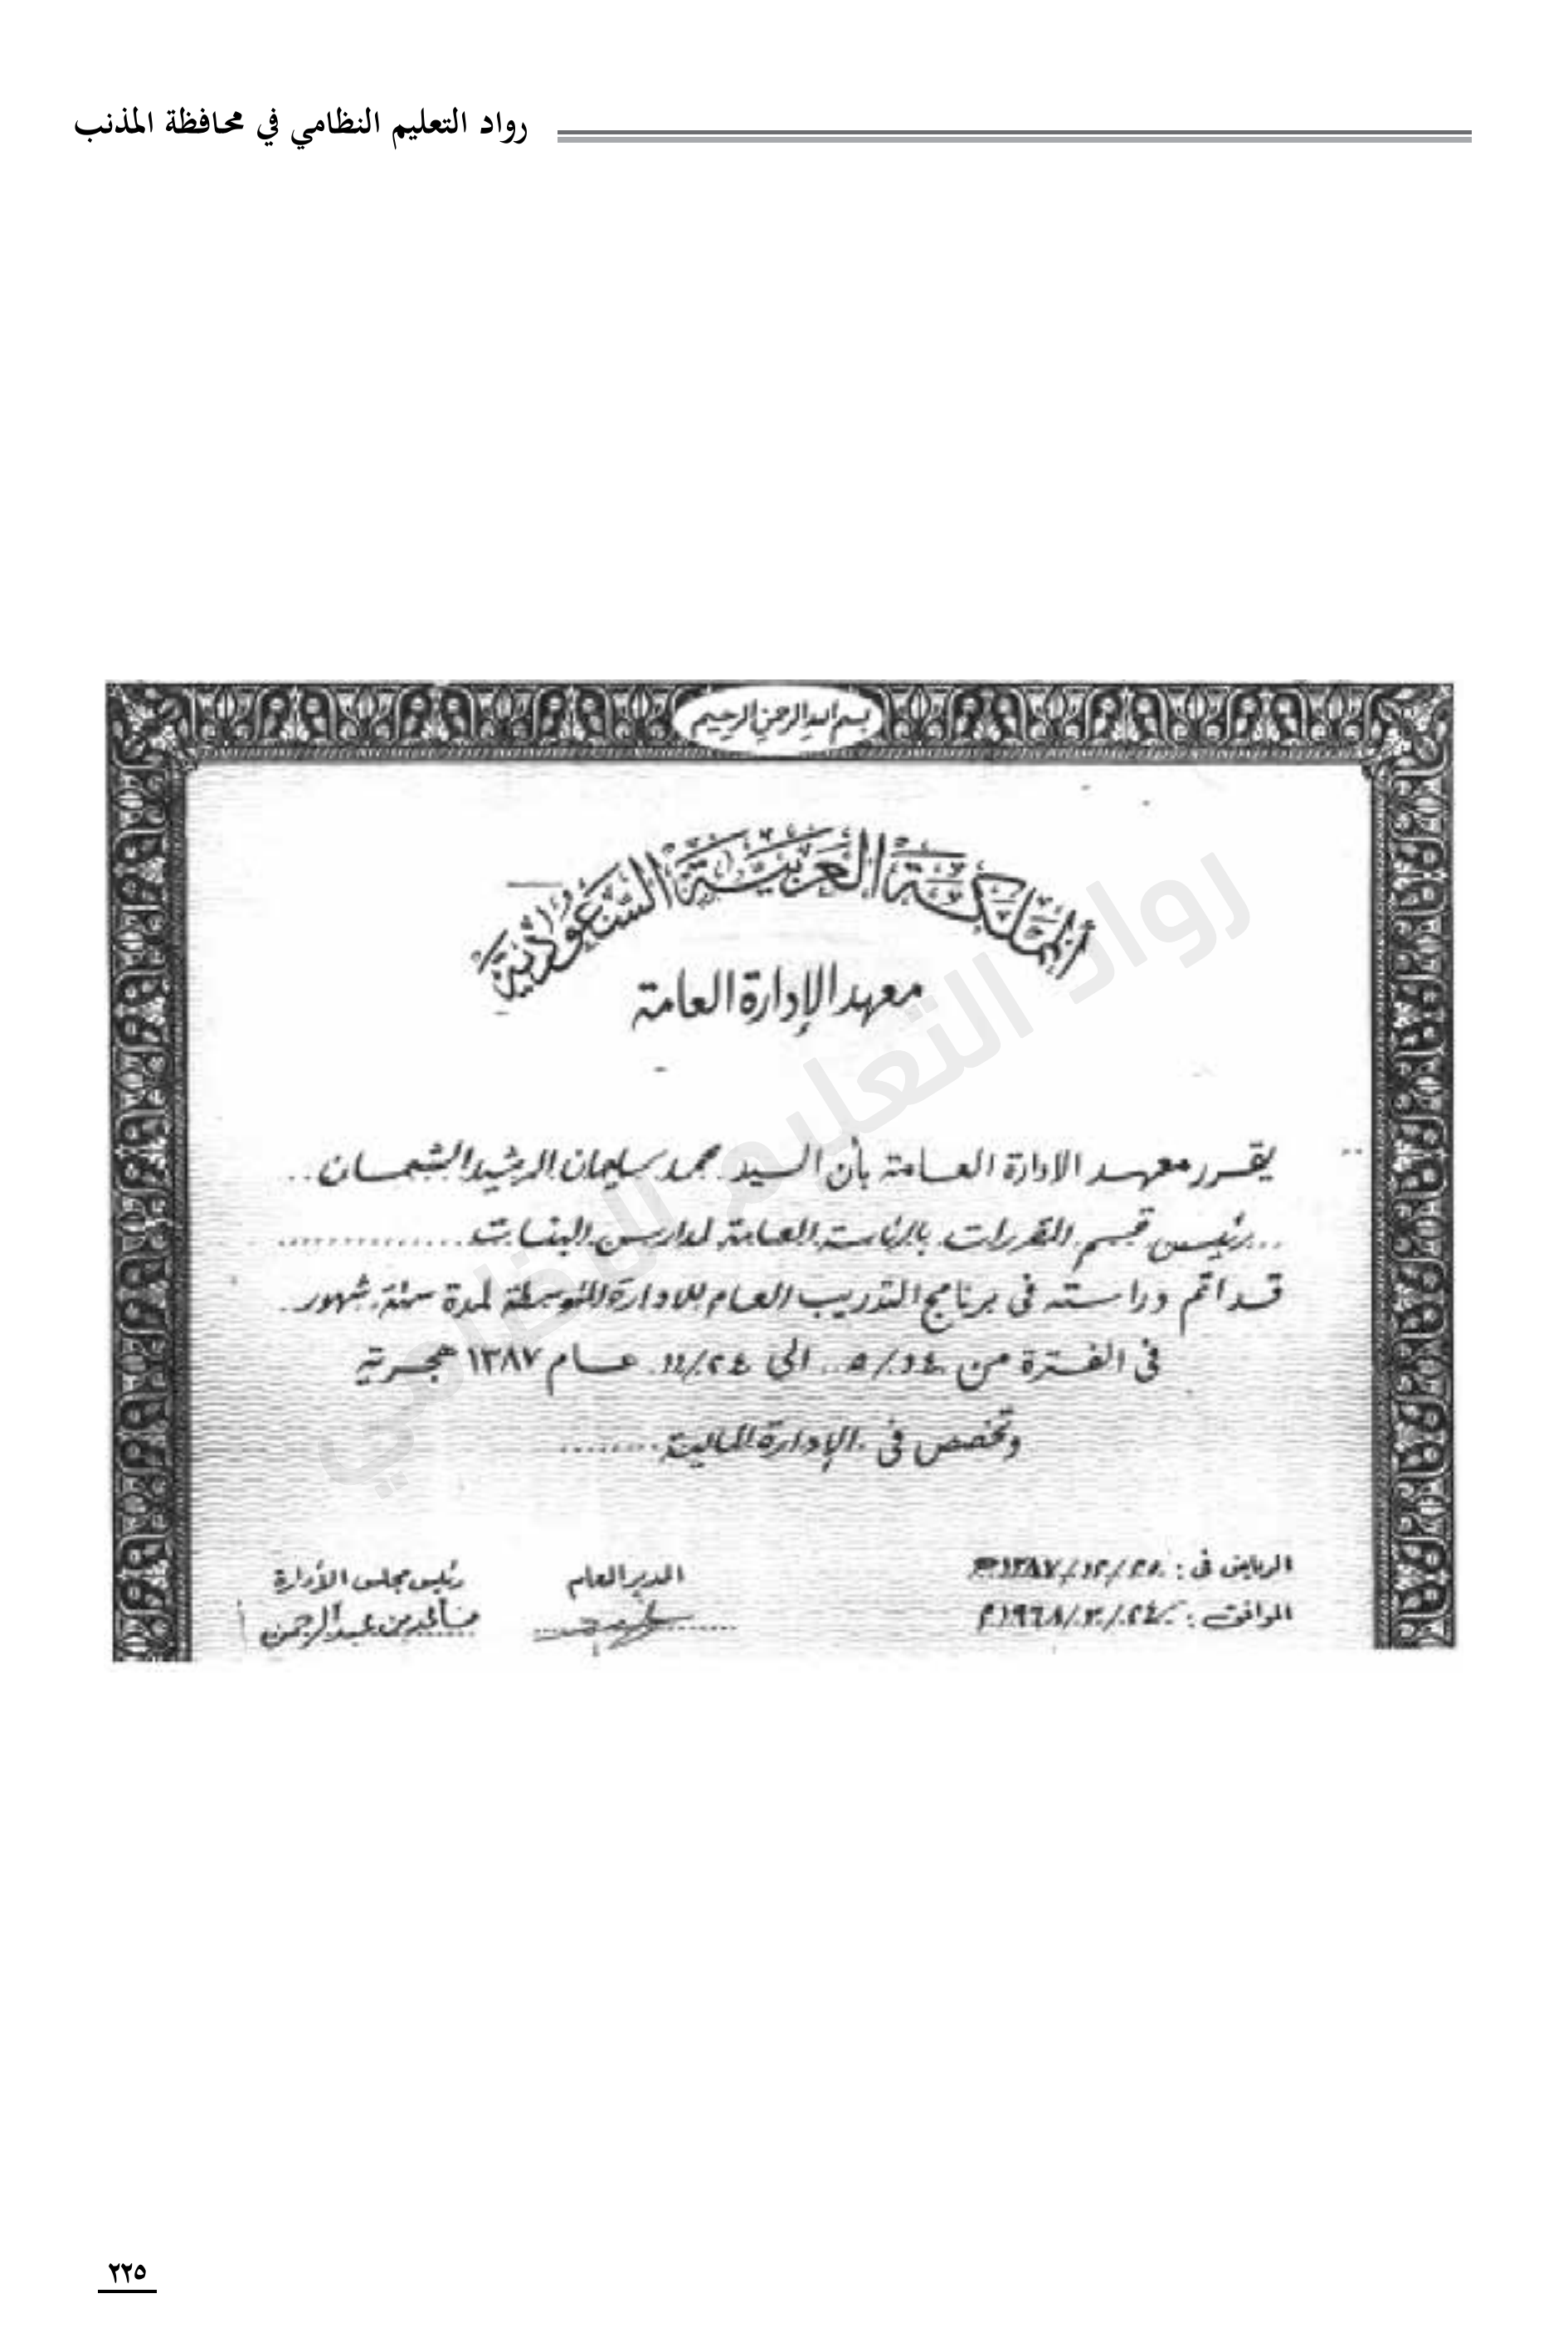 رواد التعليم النظامي في محافظة المذنب
بسم الله الرحمن الرحيم
المملكة العربية السعودية
معهد الإدارة العامة
يقرر معهد الادارة العامة بأن السيد محمد سليمان الرشيد الشمسان
رئيس قسم المقررات بالرئاسة العامة لمدارس البنات
قد اتم دراسته في برنامج التدريب العام للادارة المتوسطة لمدة ستة شهور
في الفترة من ٢٤/٥ الى ٢٤/١١ عام ١٣٨٧ هجرية
وتخصص في الإدارة المالية
الرياض في : ٢٥/١٢/١٣٨٧هـ
الموافق : ٢٤/٣/١٩٦٨م
المدير العام
رئيس مجلس الأدارة
مساعد بن عبد الرحمن
رواد التعليم النظامي
٢٢٥